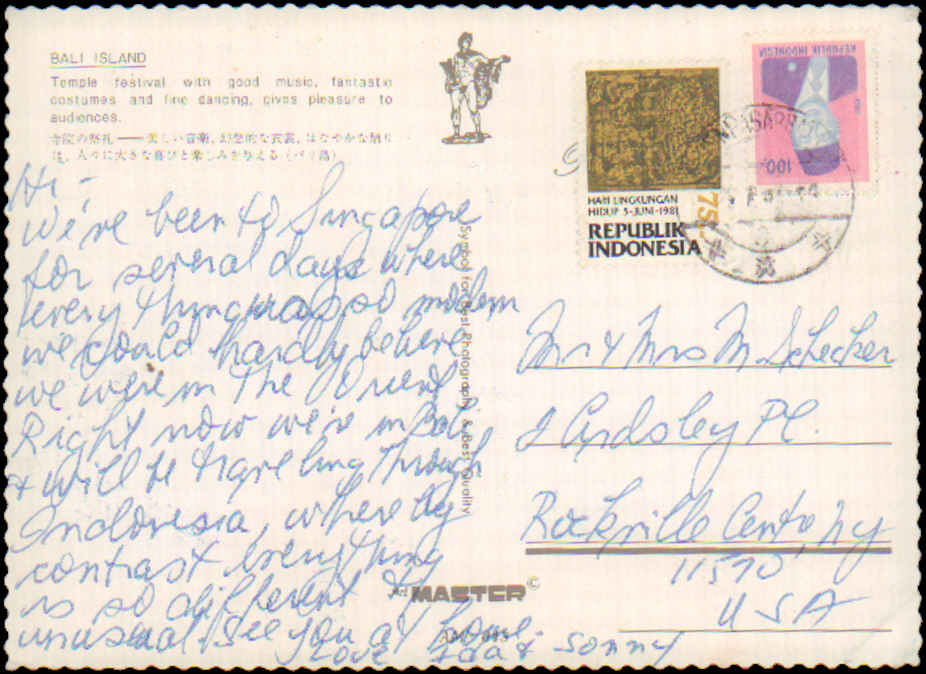 BALI ISLAND
Temple festival with good music, fantastic
costumes and fine dancing, gives pleasure to
audiences.
寺院の祭礼——美しい音楽、幻想的な衣裳、はなやかな踊り
は、人々に大きな喜びと楽しみを与える（バリ島）
Hi -
We've been to Singapore
for several days where
every thing was so modern
we could hardly believe
we were in the Orient.
Right now we're in Bali
& will be traveling through
Indonesia, where by
contrast everything
is so different &
unusual. See you at home.
Love Ida & Sonny
Symbol for Best Photography & Best Quality
Art MASTER ©
HARI LINGKUNGAN
HIDUP 5-JUNI-1981
75
REPUBLIK
INDONESIA
REPUBLIK INDONESIA
100
DENPASAR
Mr & Mrs M. Schecker
2 Ardsley Pl.
Rockville Centre, NY
11570
USA